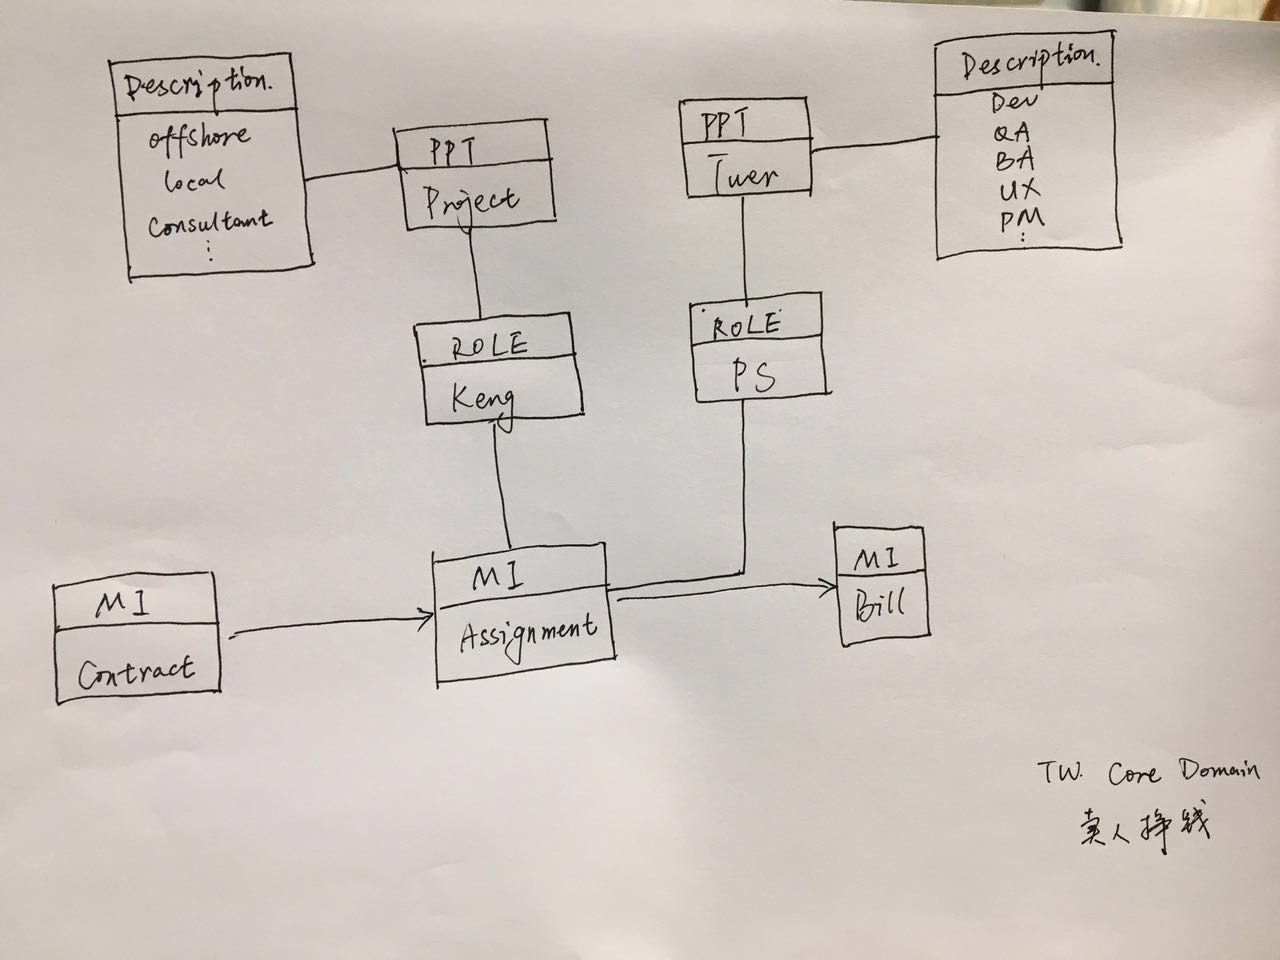 Description.
offshore
local
Consultant
⋮
PPT
Project
PPT
Twer
Description.
Dev
QA
BA
UX
PM
⋮
ROLE
Keng
ROLE
PS
MI
Contract
MI
Assignment
MI
Bill
TW. Core Domain
卖人挣钱